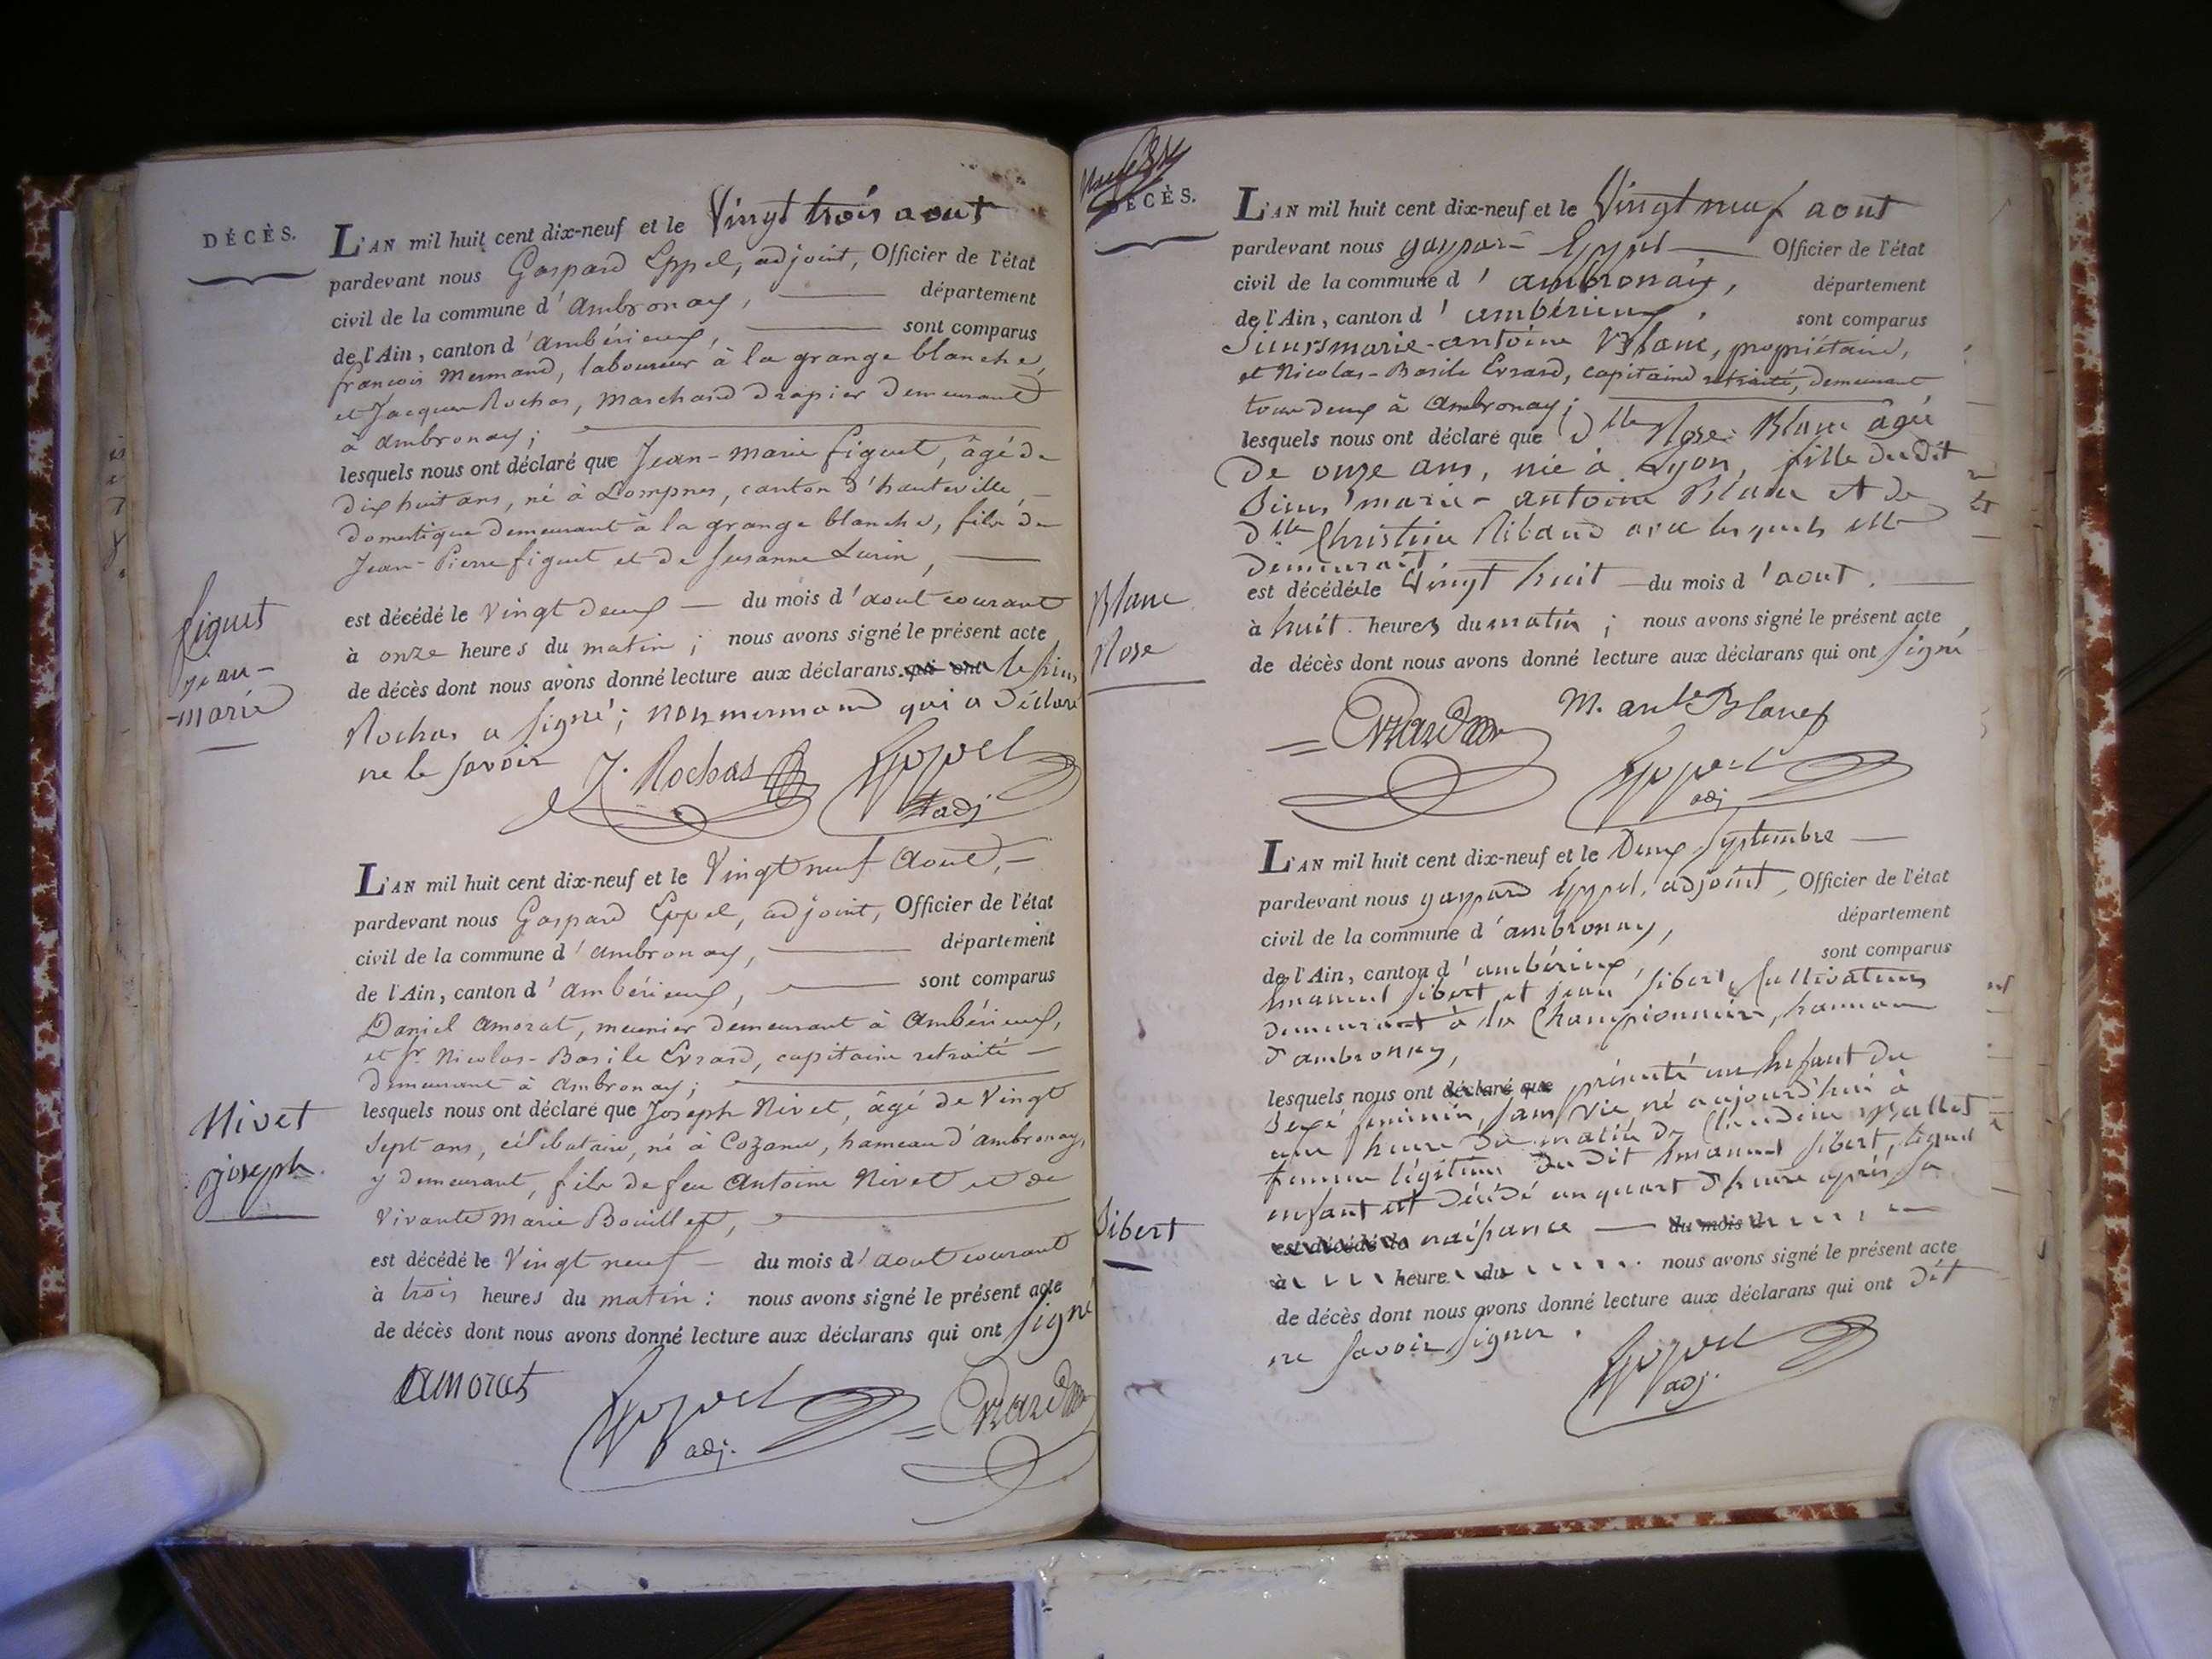 DÉCÈS.
L'AN mil huit cent dix-neuf et le Vingt trois aout
pardevant nous Gaspard Eppel, adjoint, Officier de l'état
civil de la commune d'ambronay, département
de l'Ain, canton d'ambérieux, sont comparus
francois Mermand, laboureur à la grange blanche,
et Jacques Rochas, marchand drapier demeurant
à ambronay;
lesquels nous ont déclaré que Jean-Marie figuet, âgé de
dix huit ans, né à Lompnes, canton d'hauteville,
domestique demeurant à la grange blanche, fils de
Jean-Pierre figuet et de Susanne Lurin,
est décédé le vingt deux du mois d'aout courant
à onze heures du matin; nous avons signé le présent acte
de décès dont nous avons donné lecture aux déclarans qui ont le sieur
Rochas a signé; non mermand qui a déclaré
ne le savoir
J. Rochas Eppel
adj
figuet
jean-
-marie
L'AN mil huit cent dix-neuf et le Vingt neuf Aout,
pardevant nous Gaspard Eppel, adjoint, Officier de l'état
civil de la commune d'ambronay, département
de l'Ain, canton d'ambérieux, sont comparus
Daniel Amorat, meunier demeurant à Ambérieux,
et Sr. Nicolas-Basile Evrard, capitaine retraité
demeurant à Ambronay;
lesquels nous ont déclaré que Joseph Nivet, âgé de Vingt
Sept ans, célibataire, né à Cozance, hameau d'ambronay,
y demeurant, fils de feu Antoine Nivet et de
vivante Marie Bouillet,
est décédé le Vingt neuf du mois d'aout courant
à trois heures du matin: nous avons signé le présent acte
de décès dont nous avons donné lecture aux déclarans qui ont signé
Amorat Eppel adj. Evrard
Nivet
joseph.
DÉCÈS.
L'AN mil huit cent dix-neuf et le Vingt neuf aout
pardevant nous gaspard Eppel Officier de l'état
civil de la commune d'ambronay, département
de l'Ain, canton d'ambérieux, sont comparus
marie-antoine Blanc, propriétaire,
et Nicolas-Basile Evrard, capitaine retraité, demeurant
tous deux à Ambronay;
lesquels nous ont déclaré que dlle Rose Blanc âgée
de onze ans, née à Lyon, fille du dit
Sieur marie-antoine Blanc et de
dlle Christine Ribaud avec lesquels elle
demeurait
est décédée le Vingt huit du mois d'aout.
à huit heures du matin; nous avons signé le présent acte
de décès dont nous avons donné lecture aux déclarans qui ont signé
Evrard M. ante Blanc
Eppel
adj
Blanc
Rose
L'AN mil huit cent dix-neuf et le Deux Septembre
pardevant nous gaspard Eppel, adjoint, Officier de l'état
civil de la commune d'ambronay, département
de l'Ain, canton d'ambérieux, sont comparus
Emanuel Sibert et jean Sibert, Cultivateurs
demeurant à la Championnière, hameau
d'ambronay,
lesquels nous ont déclaré que présenté un Enfant du
Sexe feminin, sans vie né aujourd'hui à
une heure du matin de Claudine
femme légitime du dit Emanuel Sibert, lequel
enfant est décédé un quart d'heure après sa
est décédé le naissance du mois d
à heure du nous avons signé le présent acte
de décès dont nous avons donné lecture aux déclarans qui ont dit
ne savoir signer.
Eppel
adj.
Sibert